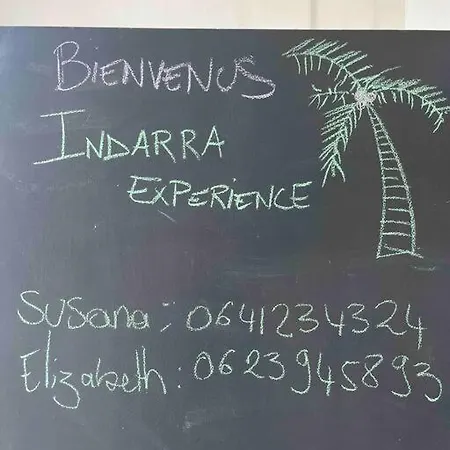 BIENVENUS
INDARRA
EXPERIENCE
Susana: 0641234324
Elizabeth: 0623945893